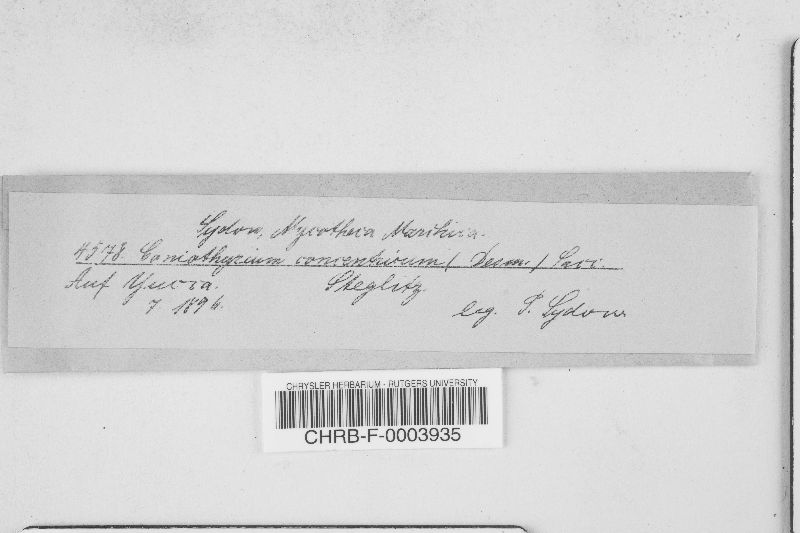 Sydow, Mycotheca Marchica.
4578. Coniothyrium concentricum (Desm.) Sacc.
Auf Yucca. Steglitz.
7. 1896. leg. P. Sydow
CHRYSLER HERBARIUM - RUTGERS UNIVERSITY
CHRB-F-0003935